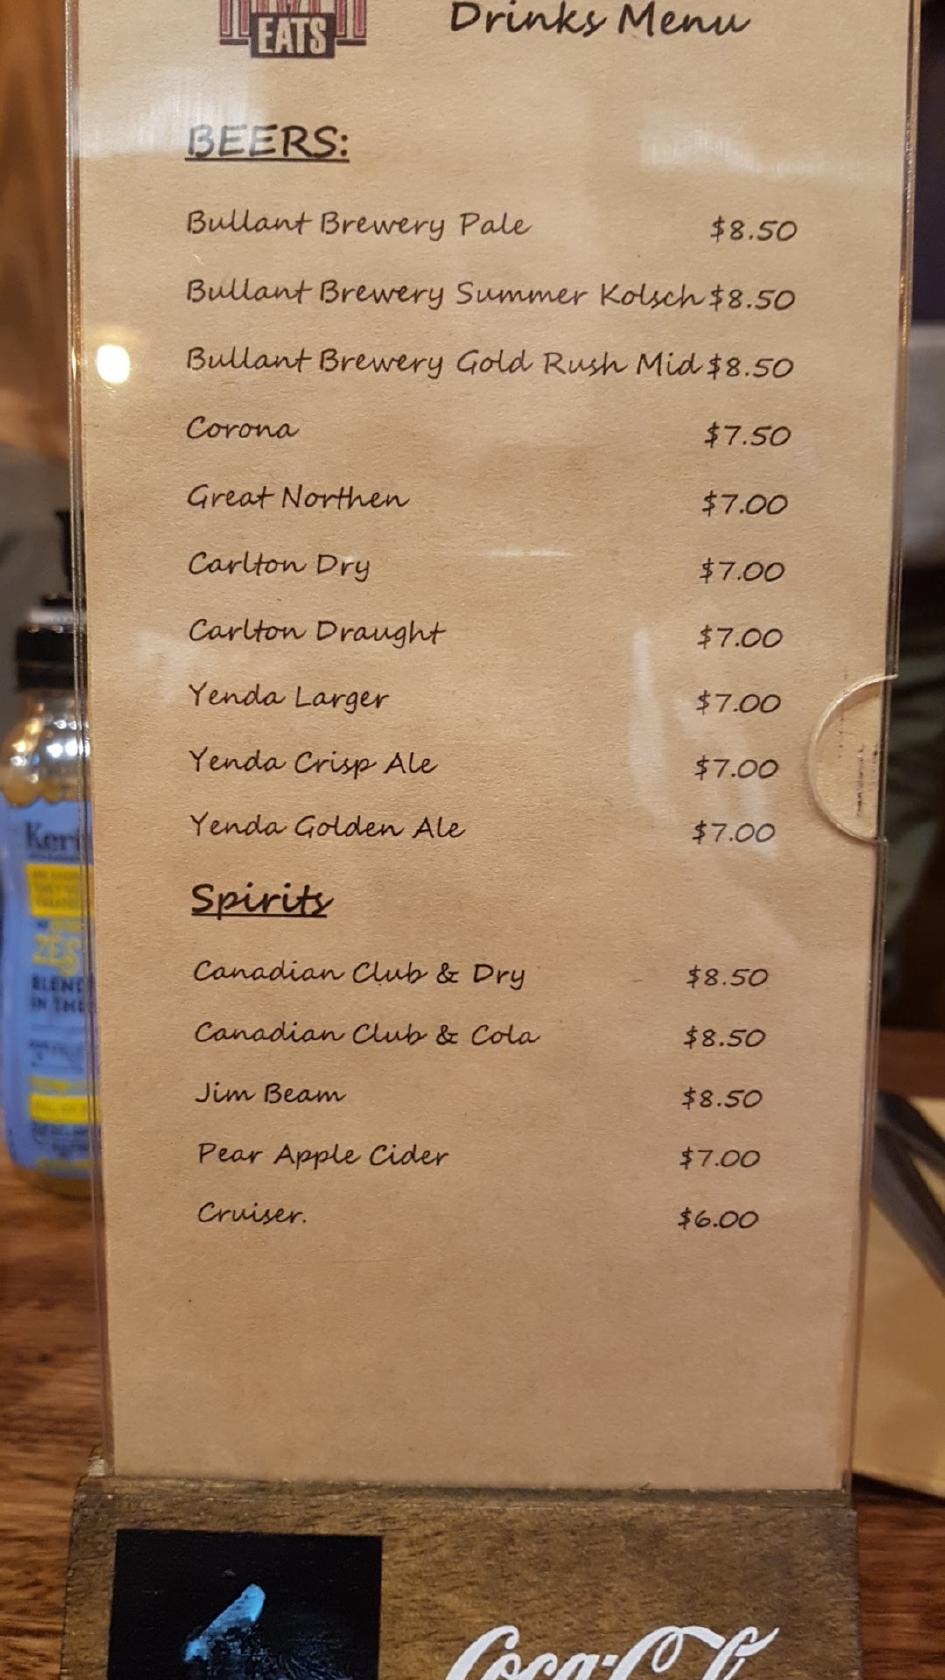 EATS
Drinks Menu
BEERS:
Bullant Brewery Pale $8.50
Bullant Brewery Summer Kolsch $8.50
Bullant Brewery Gold Rush Mid $8.50
Corona $7.50
Great Northen $7.00
Carlton Dry $7.00
Carlton Draught $7.00
Yenda Larger $7.00
Yenda Crisp Ale $7.00
Yenda Golden Ale $7.00
Spirits
Canadian Club & Dry $8.50
Canadian Club & Cola $8.50
Jim Beam $8.50
Pear Apple Cider $7.00
Cruiser. $6.00
Keri
BLEND
IN THE
Coca-Cola